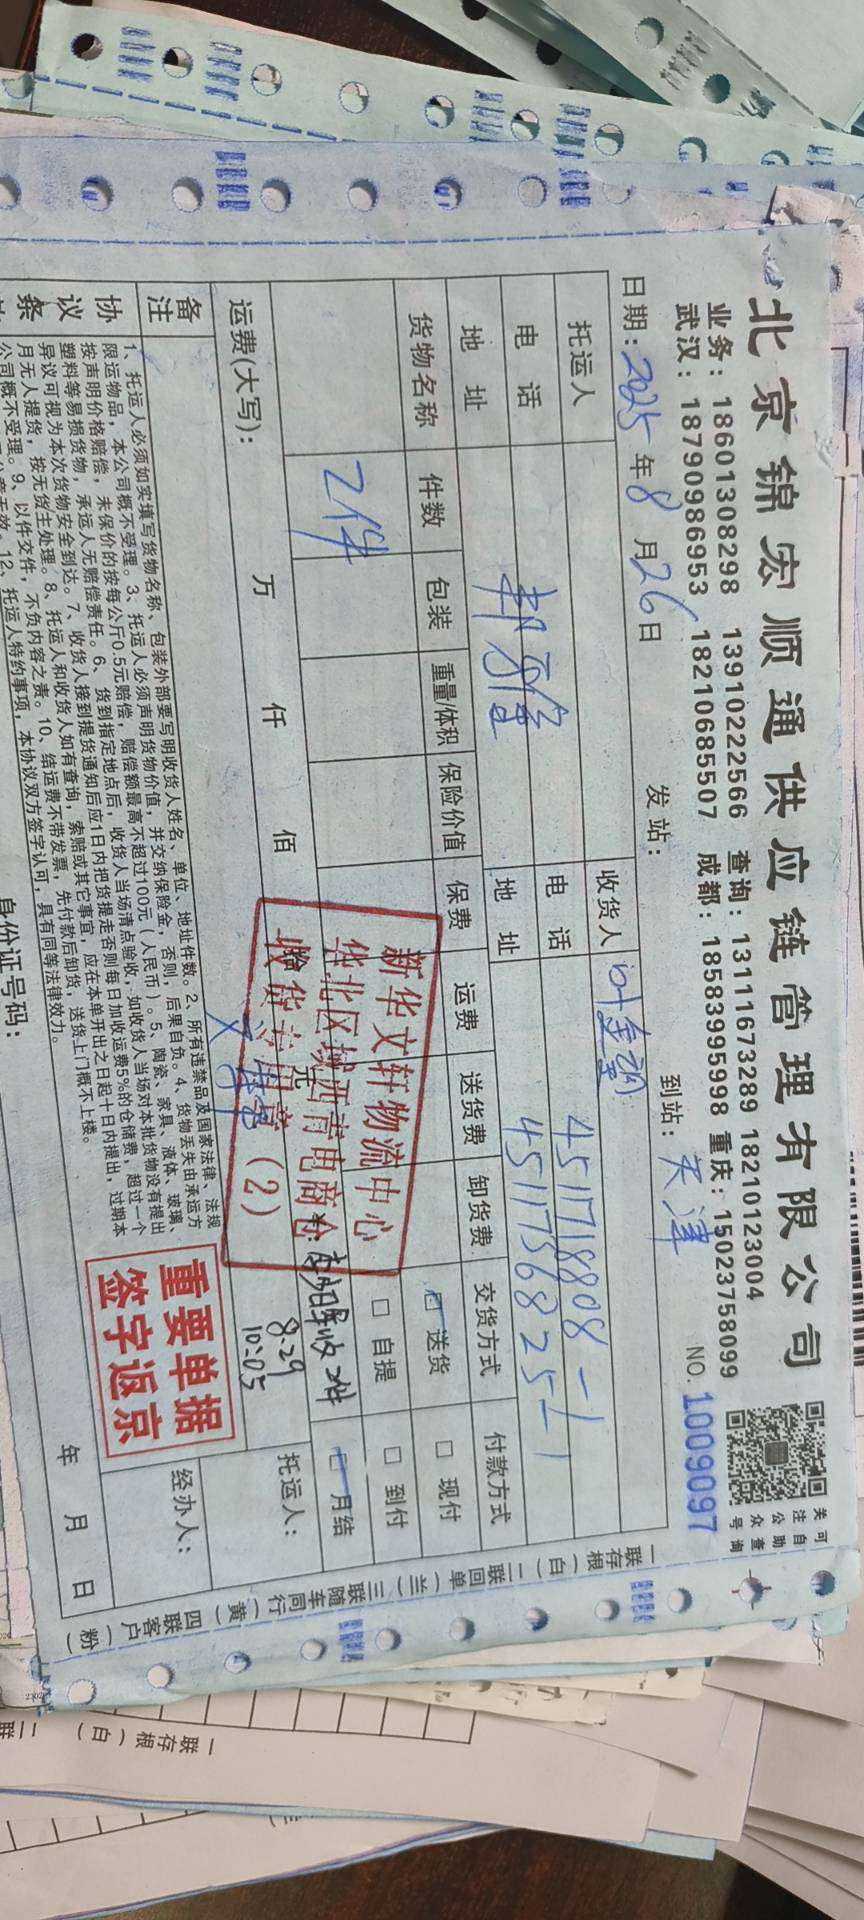 北京锦宏顺通供应链管理有限公司
可自助查询
关注公众号
业务：18601308298 13910222566 查询：13111673289 18210123004
武汉：18790986953 18210685507 成都：18583995998 重庆：15023758099
NO. 1009097
日期：2025年8月26日 发站： 到站：天津
托运人 收货人
电话 电话 4511718808-1
地址 地址 4511756825-1
货物名称 件数 包装 重量/体积 保险价值 保费 运费 送货费 卸货费 交货方式 付款方式
2件
□送货 □现付
□自提 □到付
□月结
新华文轩物流中心
华北区域西青电商仓
收货专用章（2）
收2件
8.29
10:05
运费(大写)： 万 仟 佰 拾 元
托运人：
备注
重要单据
签字返京
经办人：
协议条
1、托运人必须如实填写货物名称、包装外部要写明收货人姓名、单位、地址件数。2、所有违禁品及国家法律、法规
限运物品，本公司概不受理。3、托运人必须声明货物价值，并交纳保险金，否则，后果自负。4、货物丢失由承运方
按声明价格赔偿，未保价的按每公斤0.5元赔偿，赔偿额最高不超过100元（人民币）。5、陶瓷、家具、液体、玻璃、
塑料等易损货物，承运人无赔偿责任。6、货到指定地点后，收货人当场清点验收，如收货人当场对本批货物没有提出
异议可视为本次货物安全到达。7、收货人接到提货通知后应1日内把货提走否则每日加收运费5%的仓储费，超过一个
月无人提货，按无货主处理。8、托运人和收货人如有查询，索赔或其它事宜，应在本单开出之日起十日内提出，过期本
公司概不受理。9、以件交件，不负内容之责。10、结运费不带发票，先付款后卸货，送货上门概不上楼。
12、托运人特约事项，本协议双方签字认可，具有同等法律效力。
年 月 日
身份证号码：
一联存根（白）二联回单（兰）三联随车同行（黄）四联客户（粉）
一联存根（白）二联